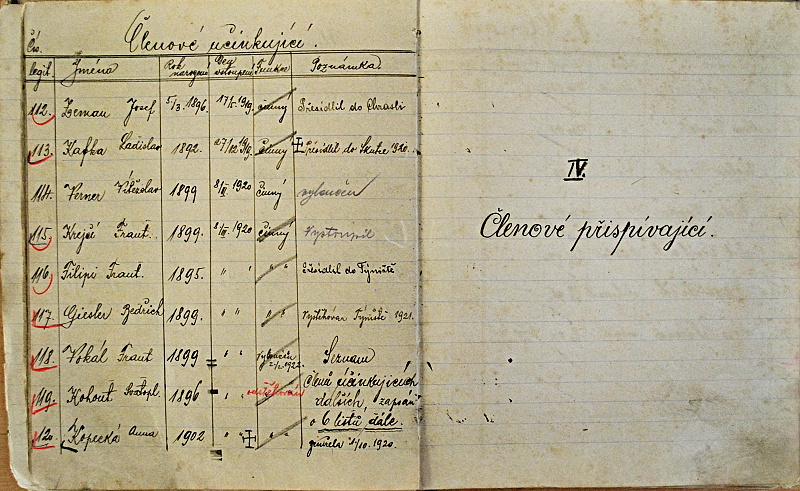 Členové účinkující.
Čís. legit. Jména Rok narození Den vstoupení Funkce Poznámka.
112. Zeman Josef 5/3. 1896. 17/5. 1919. činný Přesídlil do Chrasti
113. Kafka Ladislav 1892. 27/12 1919. činný Přesídlil do Skutče 1920.
114. Verner Vítězslav 1899 8/II. 1920 činný vyloučen
115. Krejčí Frant. 1899. 8/II. 1920 činný Vystoupil
116. Filipi Frant. 1895. " " " " Přesídlil do Týniště
117. Giesler Bedřich 1899. " " " " Vystěhován Týniště 1921.
118. Vokál Frant 1899 " " vyloučen 1922. Seznam
119. Kohout Svatopl. 1896 " Členů účinkujících
dalších, zapsán
o 6 listů dále.
120. Kopecká Anna 1902 " " " " zemřela /10. 1920.
IV.
Členové přispívající.